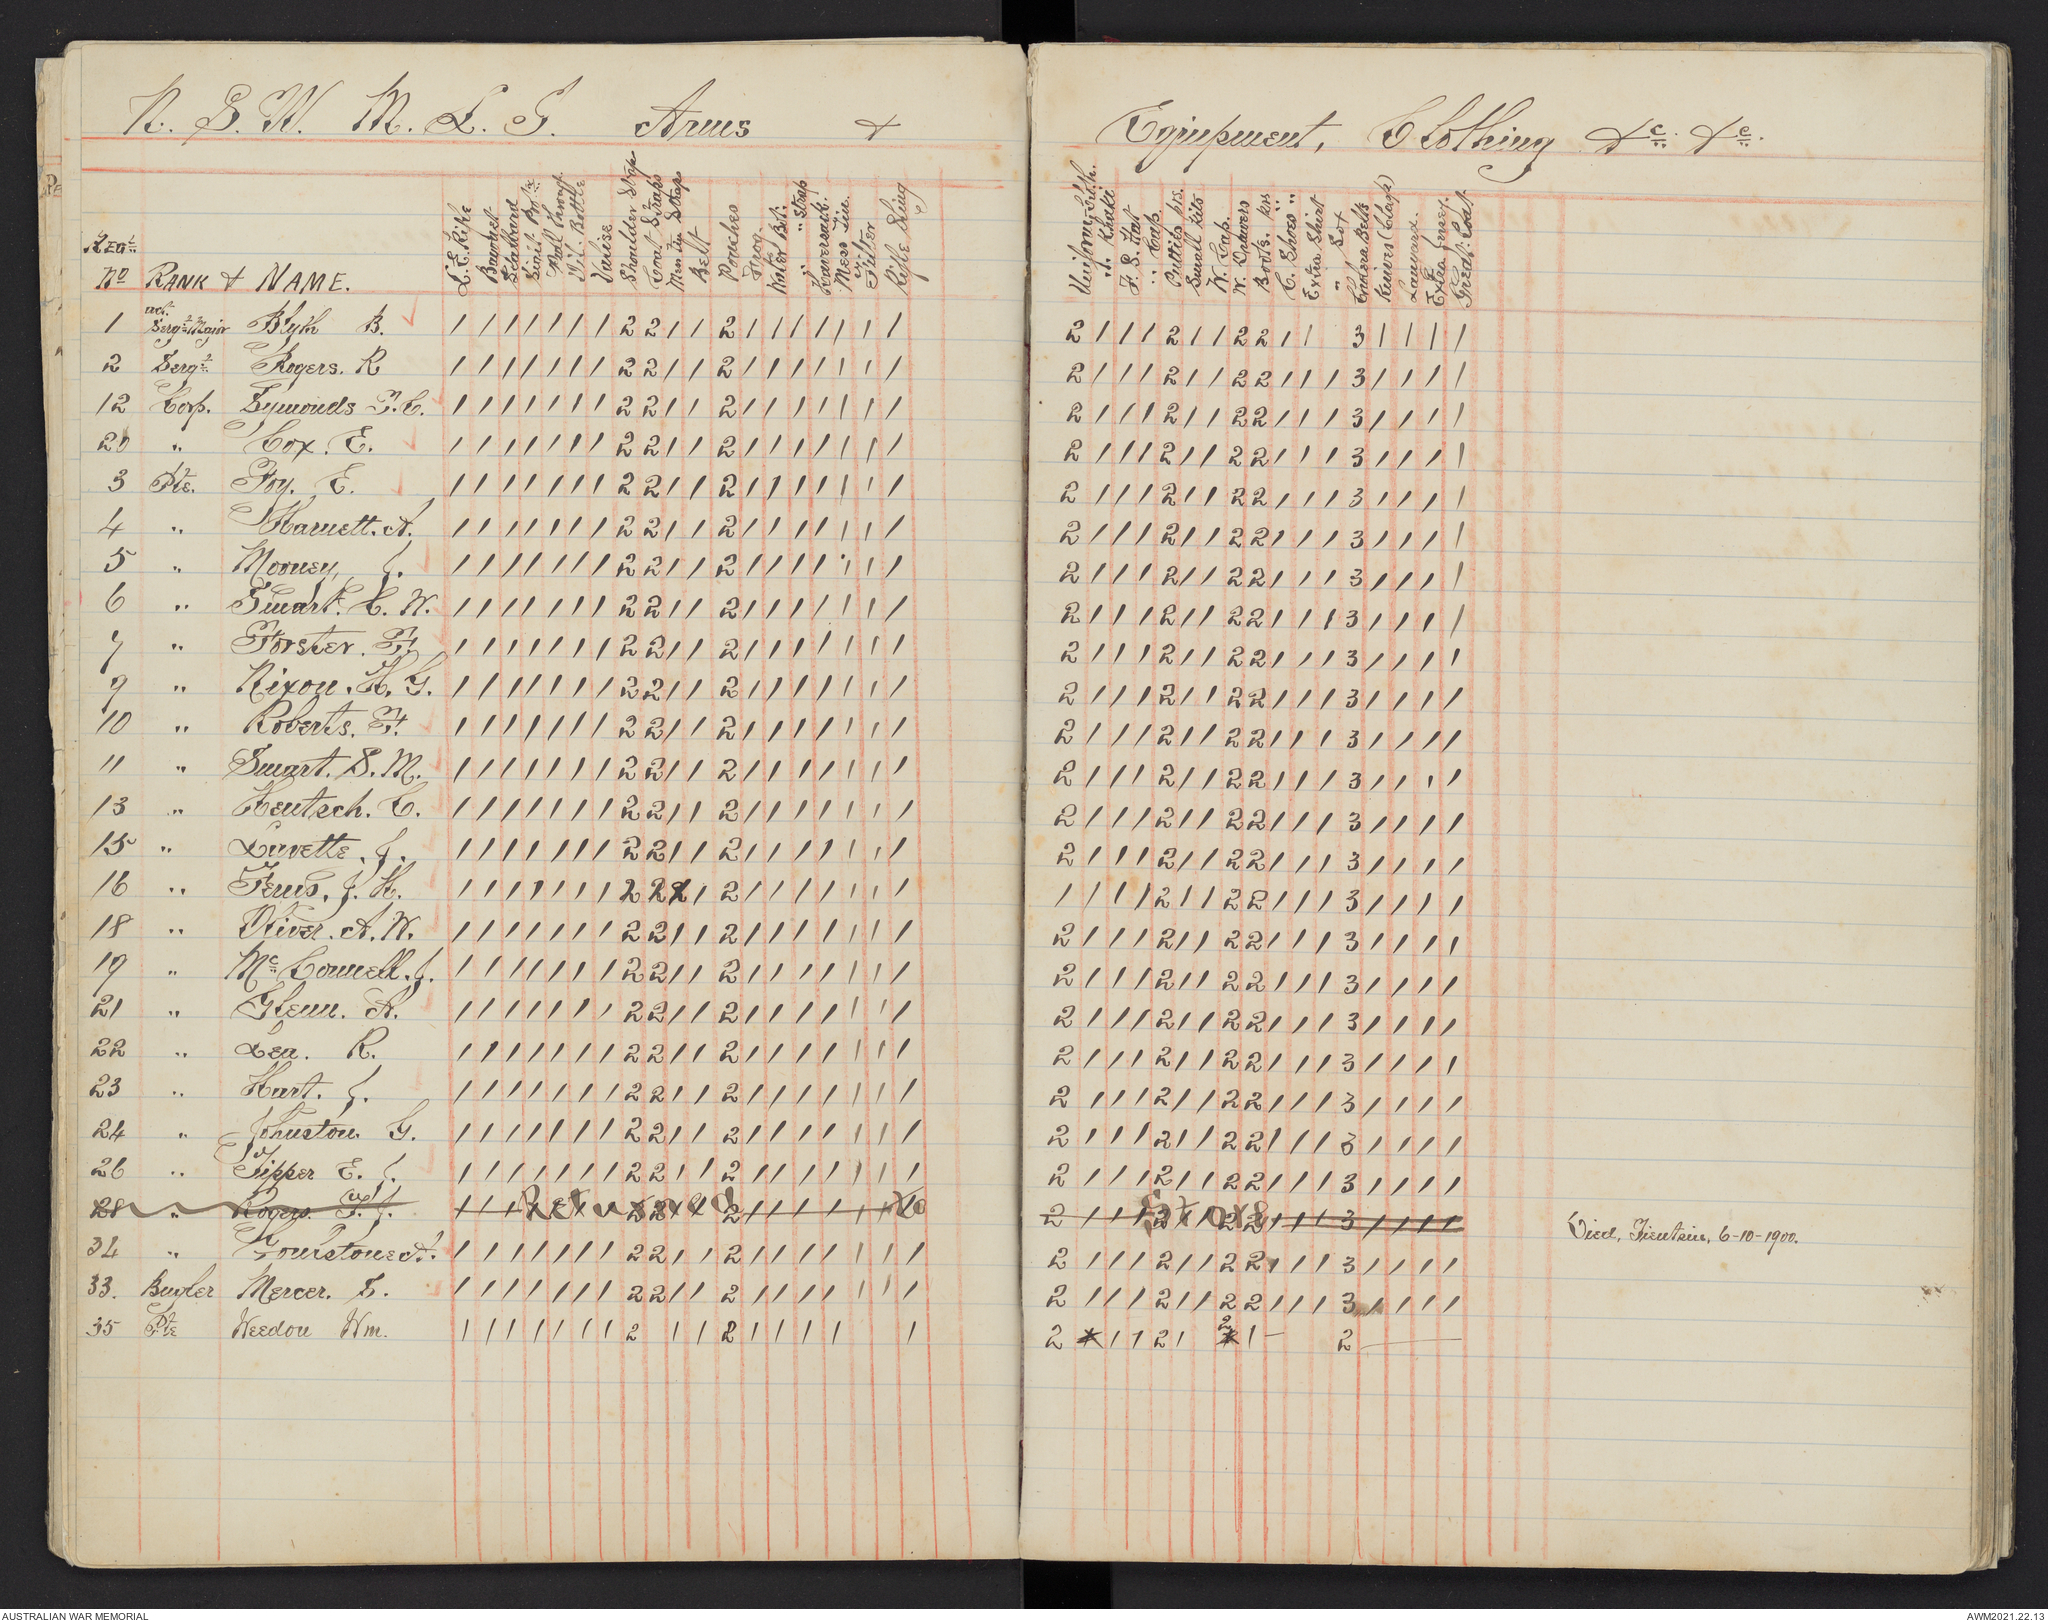 N. S. W. M. L. I. Arms &
L. E. Rifle
Bayonet
Scabbard
Pull Through
Oil. Bottle
Valise
Shoulder Strap
Coat Straps
Mess Tin Strap
Belt
Pouches
Frog
Water Bot:
" Strap
Haversack.
Mess Tin.
Filter
Rifle Sling
Regtl
No RANK & NAME.
1 act. Sergt Major Blyth B. 1 1 1 1 1 1 1 2 2 1 1 2 1 1 1 1 1 1 1
2 Sergt Rogers. R 1 1 1 1 1 1 1 2 2 1 1 2 1 1 1 1 1 1 1
12 Corp. Symonds F. C. 1 1 1 1 1 1 1 2 2 1 1 2 1 1 1 1 1 1 1
20 " Cox. E. 1 1 1 1 1 1 1 2 2 1 1 2 1 1 1 1 1 1 1
3 Pte. Foy. E. 1 1 1 1 1 1 1 2 2 1 1 2 1 1 1 1 1 1 1
4 " Harnett. A. 1 1 1 1 1 1 1 2 2 1 1 2 1 1 1 1 1 1 1
5 " Mooney, J. 1 1 1 1 1 1 1 2 2 1 1 2 1 1 1 1 1 1 1
6 " Smart. C. W. 1 1 1 1 1 1 1 2 2 1 1 2 1 1 1 1 1 1 1
7 " Forster. F. 1 1 1 1 1 1 1 2 2 1 1 2 1 1 1 1 1 1 1
9 " Nixon. H. G. 1 1 1 1 1 1 1 2 2 1 1 2 1 1 1 1 1 1 1
10 " Roberts. F. 1 1 1 1 1 1 1 2 2 1 1 2 1 1 1 1 1 1 1
11 " Smart. S. M. 1 1 1 1 1 1 1 2 2 1 1 2 1 1 1 1 1 1 1
13 " Hentsch. C. 1 1 1 1 1 1 1 2 2 1 1 2 1 1 1 1 1 1 1
15 " Lavette. J. 1 1 1 1 1 1 1 2 2 1 1 2 1 1 1 1 1 1 1
16 " J. H. 1 1 1 1 1 1 1 2 2 1 2 1 1 1 1 1 1 1
18 " Oliver. A. W. 1 1 1 1 1 1 1 2 2 1 1 2 1 1 1 1 1 1 1
19 " McConnell. J. 1 1 1 1 1 1 1 2 2 1 1 2 1 1 1 1 1 1 1
21 " Glenn. A. 1 1 1 1 1 1 1 2 2 1 1 2 1 1 1 1 1 1 1
22 " Lea. R. 1 1 1 1 1 1 1 2 2 1 1 2 1 1 1 1 1 1 1
23 " Hart. J. 1 1 1 1 1 1 1 2 2 1 1 2 1 1 1 1 1 1 1
24 " Johnston. G. 1 1 1 1 1 1 1 2 2 1 1 2 1 1 1 1 1 1 1
26 " Tipper E. J. 1 1 1 1 1 1 1 2 2 1 1 2 1 1 1 1 1 1 1
28 " Rogers. F. J. Returned To
34 " A. 1 1 1 1 1 1 1 2 2 1 1 2 1 1 1 1 1 1 1
33. Bugler Mercer. S. 1 1 1 1 1 1 1 2 2 1 1 2 1 1 1 1 1 1 1
35 Pte Weedon Wm. 1 1 1 1 1 1 1 2 1 1 2 1 1 1 1 1
Equipment, Clothing &c. &c.
Uniforms, Cloth.
" Khaki
F. S. Hat
" Cap.
Putties prs.
Small Kits
W. Cap.
W. Drawers
Boots. prs
C. Shoes "
Extra Shirt
" Sox
Cholera Belts
Knives (Clasp)
Lanyard.
Extra Jersey.
Great. Coat.
2 1 1 1 2 1 1 2 2 1 1 3 1 1 1 1 1
2 1 1 1 2 1 1 2 2 1 1 1 3 1 1 1 1 1
2 1 1 1 2 1 1 2 2 1 1 1 3 1 1 1 1 1
2 1 1 1 2 1 1 2 2 1 1 1 3 1 1 1 1 1
2 1 1 1 2 1 1 2 2 1 1 1 3 1 1 1 1 1
2 1 1 1 2 1 1 2 2 1 1 1 3 1 1 1 1 1
2 1 1 1 2 1 1 2 2 1 1 1 3 1 1 1 1 1
2 1 1 1 2 1 1 2 2 1 1 1 3 1 1 1 1 1
2 1 1 1 2 1 1 2 2 1 1 1 3 1 1 1 1
2 1 1 1 2 1 1 2 2 1 1 1 3 1 1 1 1
2 1 1 1 2 1 1 2 2 1 1 1 3 1 1 1 1
2 1 1 1 2 1 1 2 2 1 1 1 3 1 1 1 1
2 1 1 1 2 1 1 2 2 1 1 1 3 1 1 1 1
2 1 1 1 2 1 1 2 2 1 1 1 3 1 1 1 1
1 1 1 1 2 1 1 2 2 1 1 1 3 1 1 1 1
2 1 1 1 2 1 1 2 2 1 1 1 3 1 1 1 1
2 1 1 1 2 1 1 2 2 1 1 1 3 1 1 1 1
2 1 1 1 2 1 1 2 2 1 1 1 3 1 1 1 1
2 1 1 1 2 1 1 2 2 1 1 1 3 1 1 1 1
2 1 1 1 2 1 1 2 2 1 1 1 3 1 1 1 1
2 1 1 1 2 1 1 2 2 1 1 1 3 1 1 1 1
2 1 1 1 2 1 1 2 2 1 1 1 3 1 1 1 1
Store Died, Tientsin, 6-10-1900.
2 1 1 1 2 1 1 2 2 1 1 1 3 1 1 1 1
2 1 1 1 2 1 1 2 2 1 1 1 3 1 1 1 1
2 1 1 2 1 2 1 - 2
AUSTRALIAN WAR MEMORIAL
AWM2021.22.13